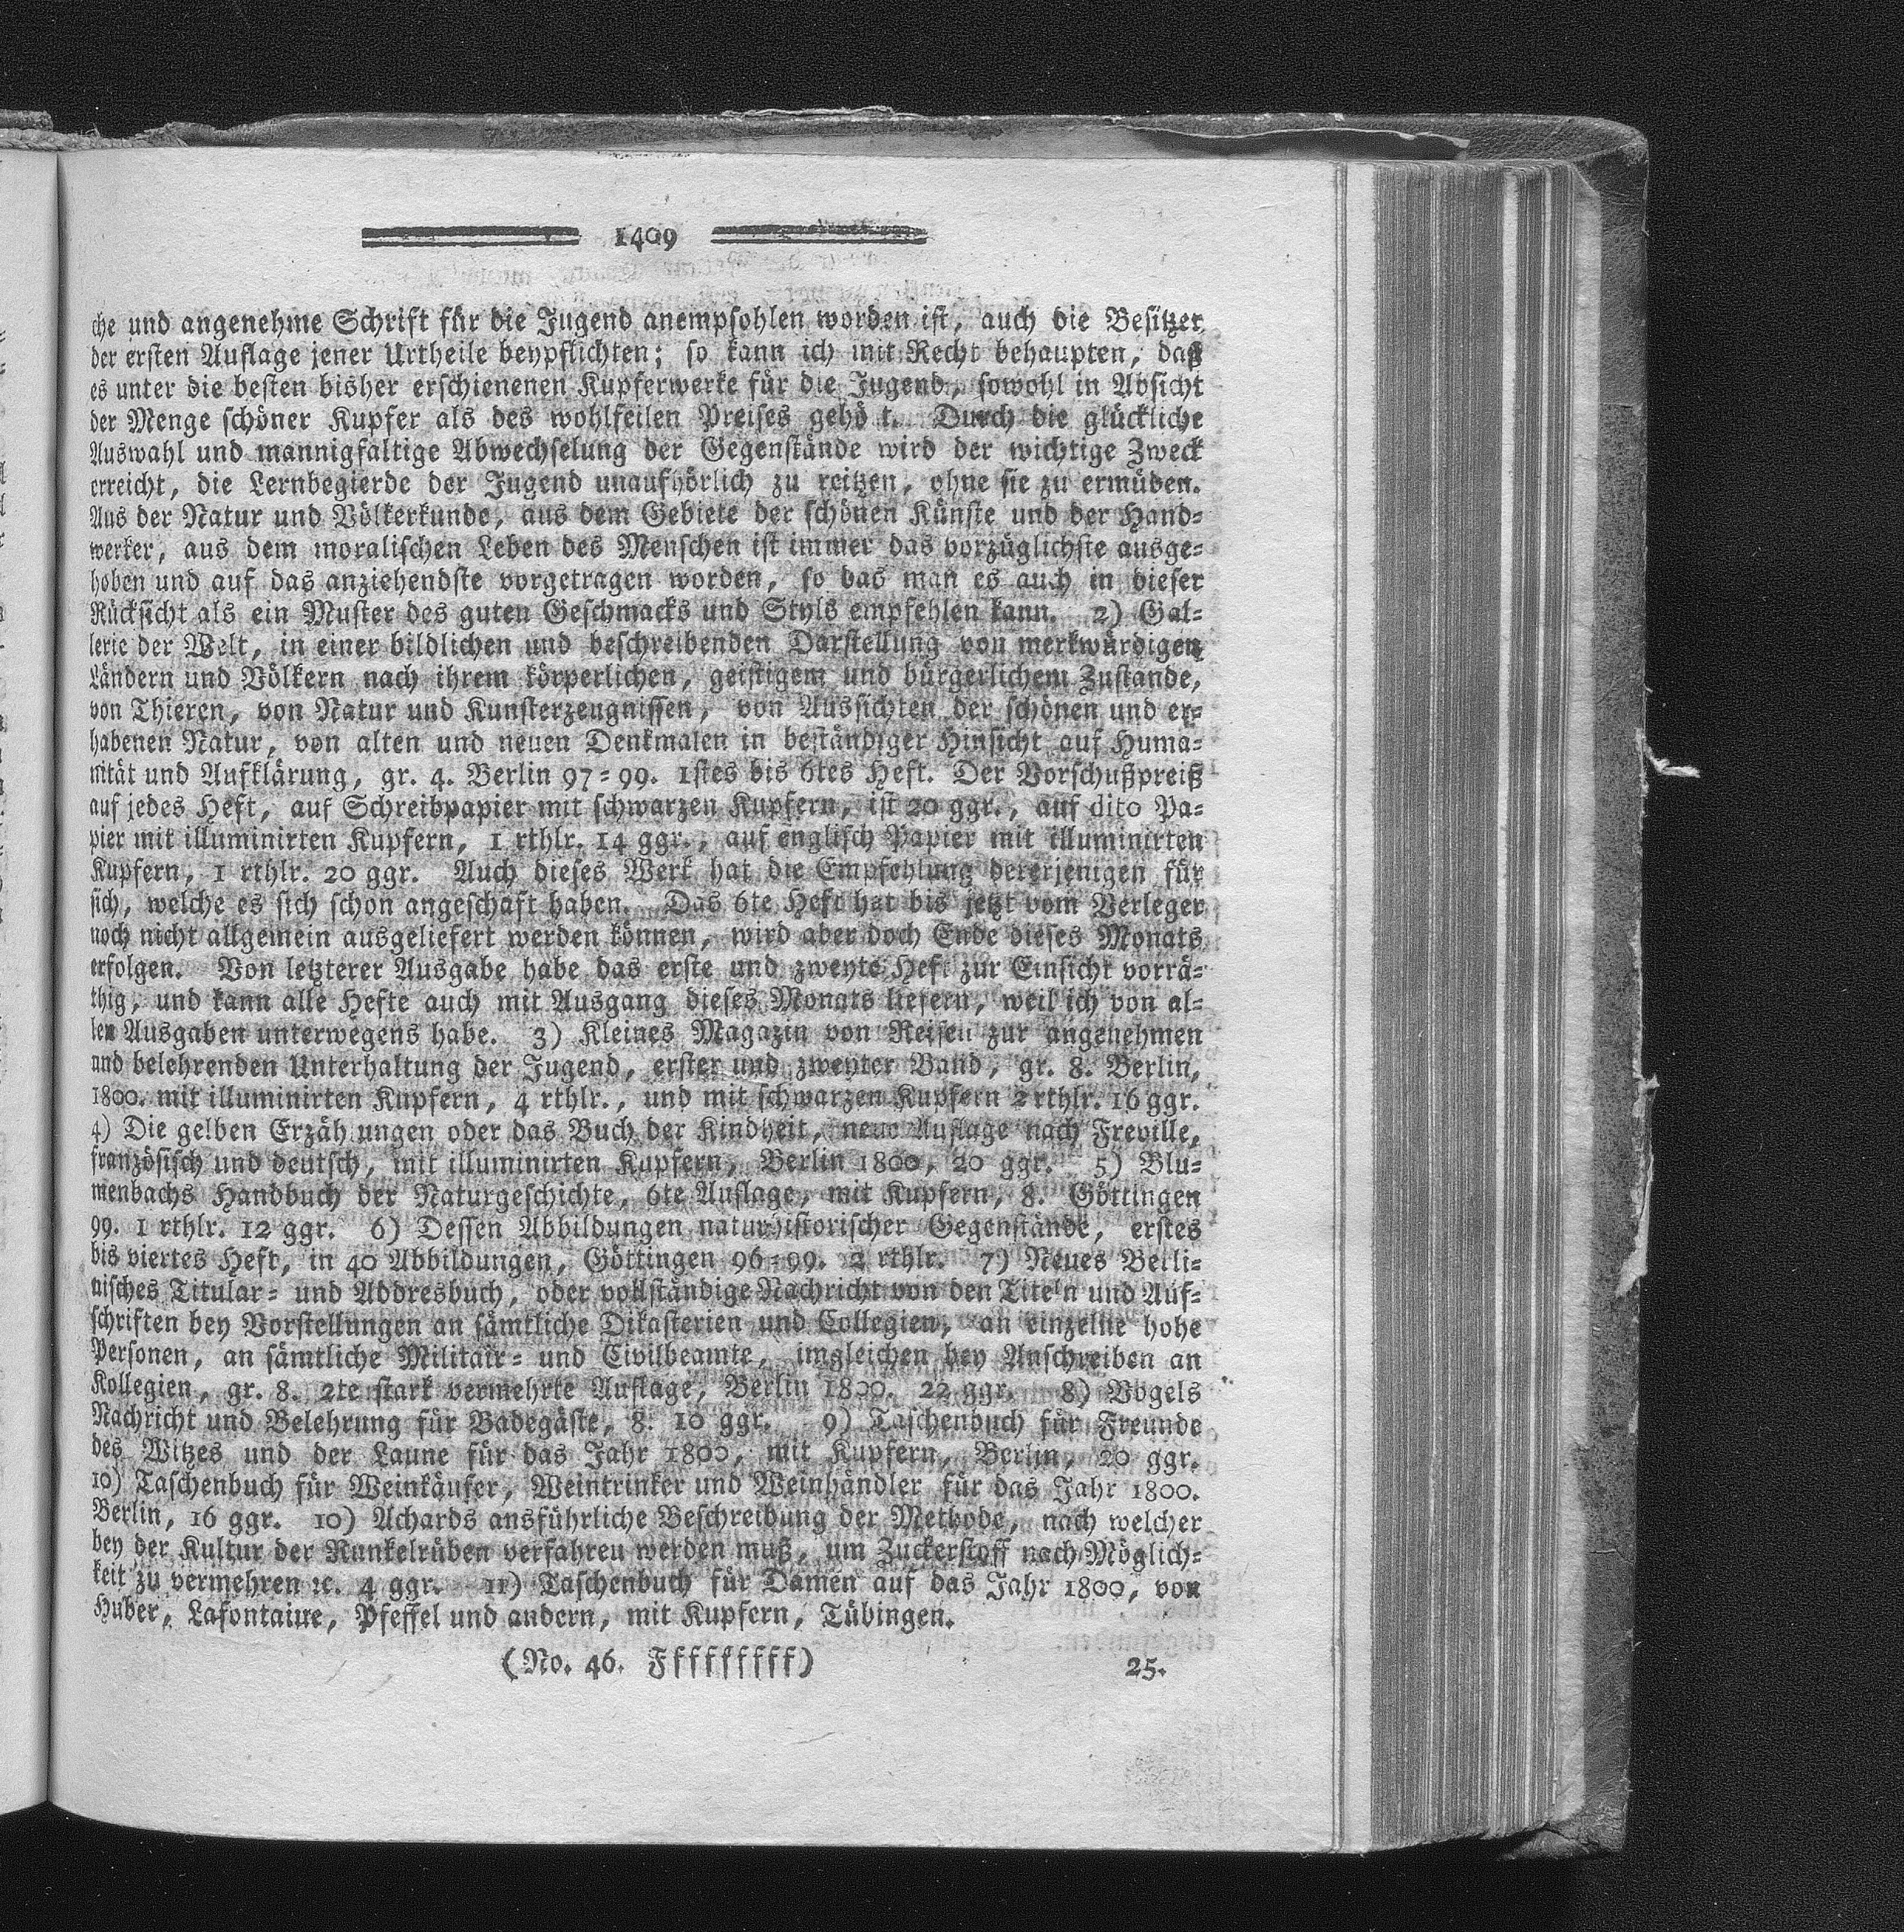 1409
che und angenehme Schrift für die Jugend anempfohlen worden ist, auch die Besitzer
der ersten Auflage jener Urtheile beypflichten; so kann ich mit Recht behaupten, daß
es unter die besten bisher erschienenen Kupferwerke für die Jugend, sowohl in Absicht
der Menge schöner Kupfer als des wohlfeilen Preises gehö t. Durch die glückliche
Auswahl und mannigfaltige Abwechselung der Gegenstände wird der wichtige Zweck
erreicht, die Lernbegierde der Jugend unaufhörlich zu reitzen, ohne sie zu ermüden.
Aus der Natur und Völkerkunde, aus dem Gebiete der schönen Künste und der Hand=
werker, aus dem moralischen Leben des Menschen ist immer das vorzüglichste ausge=
hoben und auf das anziehendste vorgetragen worden, so das man es auch in dieser
Rücksicht als ein Muster des guten Geschmacks und Styls empfehlen kann. 2) Gal=
lerie der Welt, in einer bildlichen und beschreibenden Darstellung von merkwürdigen
Ländern und Völkern nach ihrem körperlichen, geistigem und bürgerlichem Zustande,
von Thieren, von Natur und Kunsterzeugnissen, von Aussichten der schönen und er=
habenen Natur, von alten und neuen Denkmalen in beständiger Hinsicht auf Huma=
nität und Aufklärung, gr. 4. Berlin 97=99. 1stes bis 6tes Heft. Der Vorschußpreiß
auf jedes Heft, auf Schreibpapier mit schwarzen Kupfern, ist 20 ggr., auf dito Pa=
pier mit illuminirten Kupfern, 1 rthlr. 14 ggr., auf englisch Papier mit illuminirten
Kupfern, 1 rthlr. 20 ggr. Auch dieses Werk hat die Empfehlung dererjenigen für
sich, welche es sich schon angeschaft haben. Das 6te Heft hat bis jetzt vom Verleger
noch nicht allgemein ausgeliefert werden können, wird aber doch Ende dieses Monats
erfolgen. Von letzterer Ausgabe habe das erste und zweyte Heft zur Einsicht vorrä=
thig, und kann alle Hefte auch mit Ausgang dieses Monats liefern, weil ich von al=
len Ausgaben unterwegens habe. 3) Kleines Magazin von Reisen zur angenehmen
und belehrenden Unterhaltung der Jugend, erster und zweyter Band, gr. 8. Berlin,
1800. mit illuminirten Kupfern, 4 rthlr., und mit schwarzen Kupfern 2 rthlr. 16 ggr.
4) Die gelben Erzäh ungen oder das Buch der Kindheit, neue Auflage nach Freville,
französisch und deutsch, mit illuminirten Kupfern, Berlin 1800, 20 ggr. 5) Blu=
menbachs Handbuch der Naturgeschichte, 6te Auflage, mit Kupfern, 8. Göttingen
99. 1 rthlr. 12 ggr. 6) Dessen Abbildungen naturhistorischer Gegenstände, erstes
bis viertes Heft, in 40 Abbildungen, Göttingen 96=99. 2 rthlr. 7) Neues Berli=
nisches Titular= und Addresbuch, oder vollständige Nachricht von den Titeln und Auf=
schriften bey Vorstellungen an sämtliche Dikasterien und Collegien, an einzelne hohe
Personen, an sämtliche Militair= und Civilbeamte, imgleichen bey Anschreiben an
Kollegien, gr. 8. 2te stark vermehrte Auflage, Berlin 1800. 22 ggr. 8) Vogels
Nachricht und Belehrung für Badegäste, 8. 10 ggr. 9) Taschenbuch für Freunde
des Witzes und der Laune für das Jahr 1800, mit Kupfern, Berlin, 20 ggr.
10) Taschenbuch für Weinkäufer, Weintrinker und Weinhändler für das Jahr 1800.
Berlin, 16 ggr. 10) Achards ausführliche Beschreibung der Methode, nach welcher
bey der Kultur der Runkelrüben verfahren werden muß, um Zuckerstoff nach Möglich=
keit zu vermehren ꝛc. 4 ggr. 11) Taschenbuch für Damen auf das Jahr 1800, von
Huber, Lafontaine, Pfeffel und andern, mit Kupfern, Tübingen.
(No. 46. Fffffffff) 25.